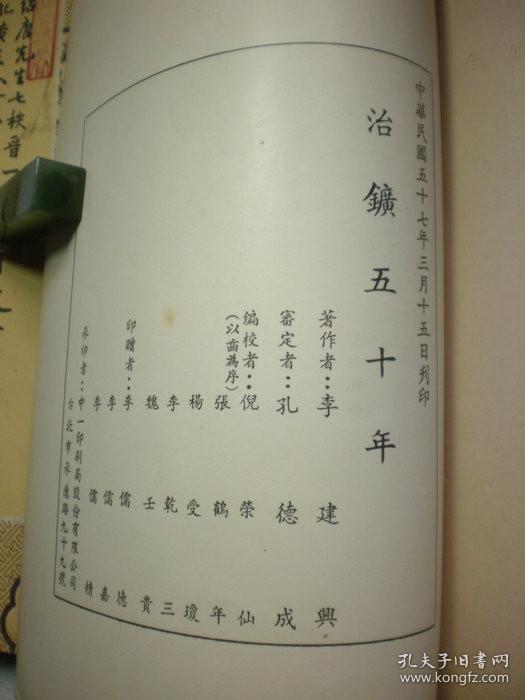 中華民國五十七年三月十五日刊印
治鑛五十年
著作者：李建興
審定者：孔德成
編校者：倪榮仙
(以齒為序)張鶴年
楊受瓊
李乾三
魏壬貴
印贈者：李儒德
李儒嘉
李儒精
承印者：中一印刷局股份有限公司
台北市承德路九十九號
先生七秩晉一
孔夫子旧书网
www.kongfz.com